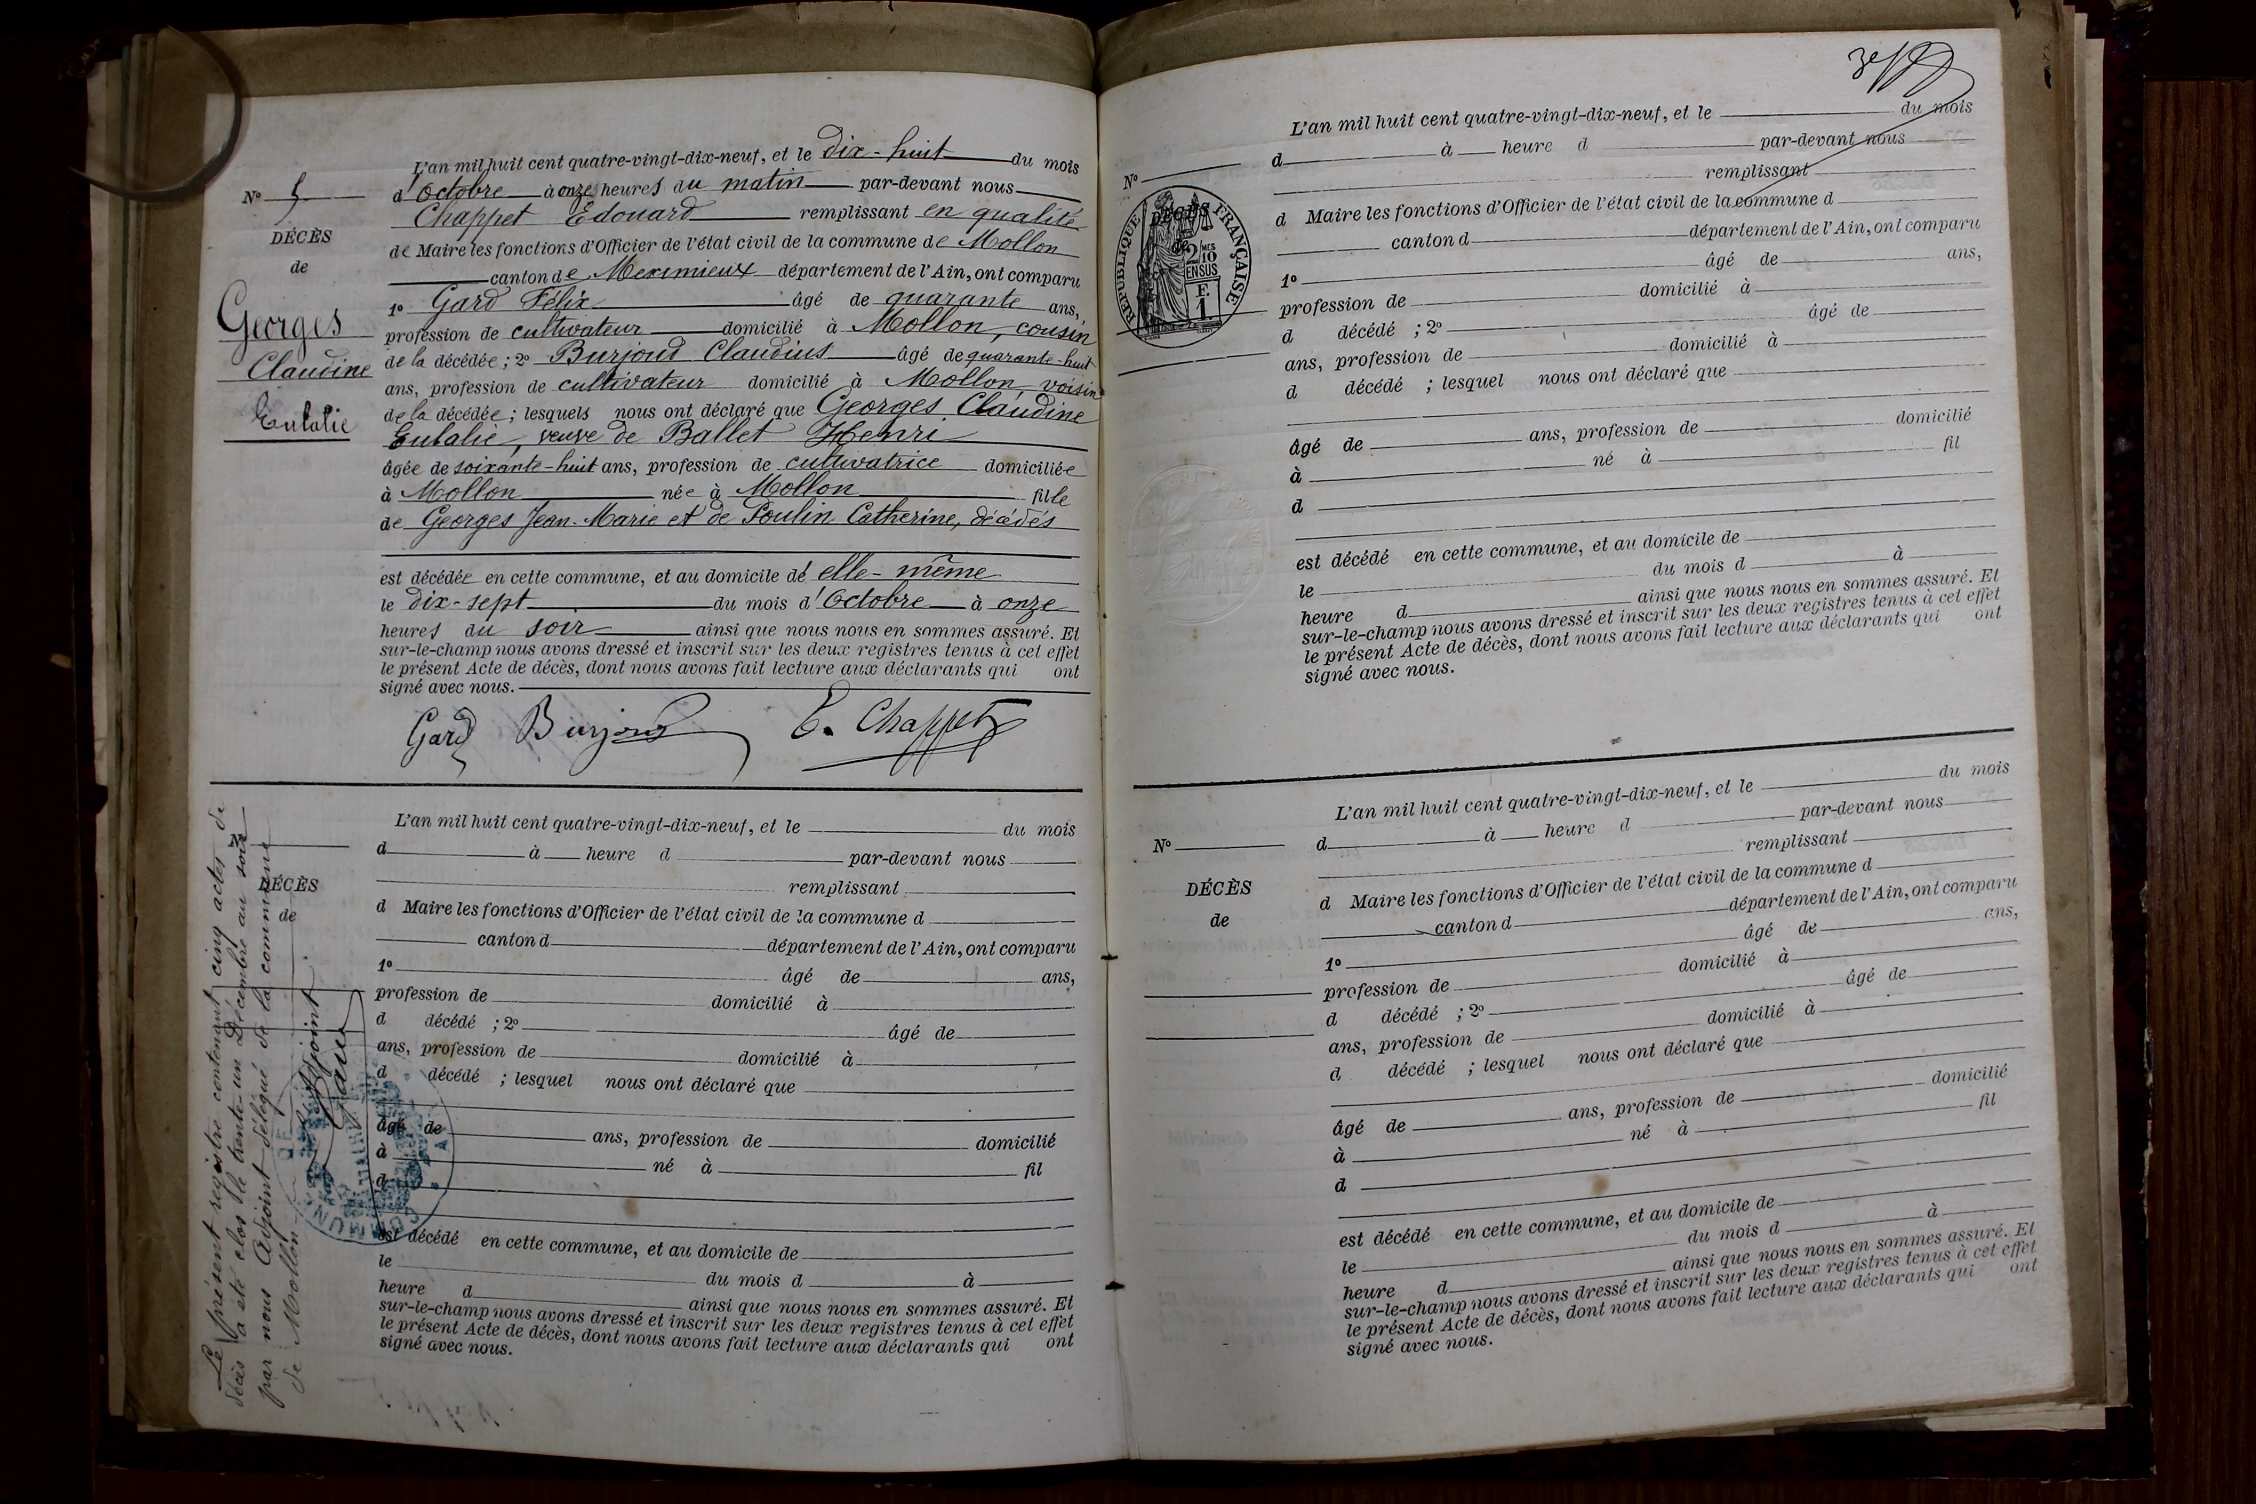 L'an mil huit cent quatre-vingt-dix-neuf, et le dix-huit du mois
d'Octobre à onze heures du matin par-devant nous
Chappet Edouard remplissant en qualité
de Maire les fonctions d'Officier de l'état civil de la commune de Mollon
canton de Meximieux département de l'Ain, ont comparu
1º Gard Félix âgé de quarante ans,
profession de cultivateur domicilié à Mollon, cousin
de la décédée ; 2º Burjoud Claudius âgé de quarante-huit
ans, profession de cultivateur domicilié à Mollon, voisin
de la décédée ; lesquels nous ont déclaré que Georges Claudine
Eulalie, veuve de Ballet Henri
âgée de soixante-huit ans, profession de cultivatrice domiciliée
à Mollon née à Mollon fille
de Georges Jean-Marie et de Poulin Catherine, décédés
est décédée en cette commune, et au domicile de elle-même
le dix-sept du mois d'Octobre à onze
heures du soir ainsi que nous nous en sommes assuré. Et
sur-le-champ nous avons dressé et inscrit sur les deux registres tenus à cet effet
le présent Acte de décès, dont nous avons fait lecture aux déclarants qui ont
signé avec nous.
Gard Burjoud E. Chappet
Nº 5
DÉCÈS
de
Georges
Claudine
Eulalie
L'an mil huit cent quatre-vingt-dix-neuf, et le du mois
d à heure d par-devant nous
remplissant
d Maire les fonctions d'Officier de l'état civil de la commune d
canton d département de l'Ain, ont comparu
1º âgé de ans,
profession de domicilié à
d décédé ; 2º âgé de
ans, profession de domicilié à
d décédé ; lesquel nous ont déclaré que
âgé de ans, profession de domicilié
à né à fil
d
est décédé en cette commune, et au domicile de
le du mois d à
heure d ainsi que nous nous en sommes assuré. Et
sur-le-champ nous avons dressé et inscrit sur les deux registres tenus à cet effet
le présent Acte de décès, dont nous avons fait lecture aux déclarants qui ont
signé avec nous.
Nº
DÉCÈS
de
Le présent registre contenant cinq actes de
décès a été clos le trente-un Décembre au soir
par nous Adjoint délégué de la commune
de Mollon
L'Adjoint
COMMUNE DE
L'an mil huit cent quatre-vingt-dix-neuf, et le du mois
d à heure d par-devant nous
remplissant
d Maire les fonctions d'Officier de l'état civil de la commune d
canton d département de l'Ain, ont comparu
1º âgé de ans,
profession de domicilié à
d décédé ; 2º âgé de
ans, profession de domicilié à
d décédé ; lesquel nous ont déclaré que
âgé de ans, profession de domicilié
à né à fil
d
est décédé en cette commune, et au domicile de
le du mois d à
heure d ainsi que nous nous en sommes assuré. Et
sur-le-champ nous avons dressé et inscrit sur les deux registres tenus à cet effet
le présent Acte de décès, dont nous avons fait lecture aux déclarants qui ont
signé avec nous.
Nº
RÉPUBLIQUE FRANÇAISE
DÉCÈS
de
2/10
EN SUS
F.
1.
L'an mil huit cent quatre-vingt-dix-neuf, et le du mois
d à heure d par-devant nous
remplissant
d Maire les fonctions d'Officier de l'état civil de la commune d
canton d département de l'Ain, ont comparu
1º âgé de ans,
profession de domicilié à
d décédé ; 2º âgé de
ans, profession de domicilié à
d décédé ; lesquel nous ont déclaré que
âgé de ans, profession de domicilié
à né à fil
d
est décédé en cette commune, et au domicile de
le du mois d à
heure d ainsi que nous nous en sommes assuré. Et
sur-le-champ nous avons dressé et inscrit sur les deux registres tenus à cet effet
le présent Acte de décès, dont nous avons fait lecture aux déclarants qui ont
signé avec nous.
Nº
DÉCÈS
de